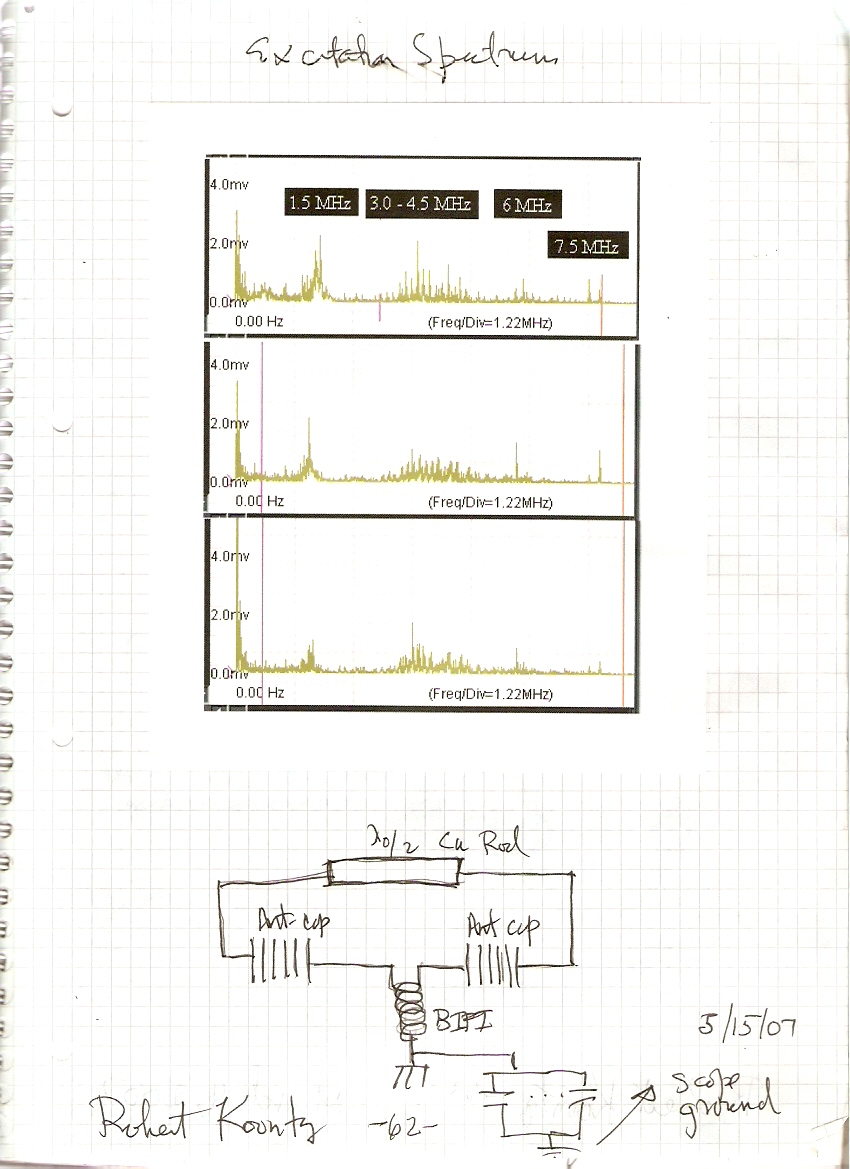 Excitation Spectrum
4.0mv
1.5 MHz
3.0 - 4.5 MHz
6 MHz
2.0mv
7.5 MHz
0.0mv
0.00 Hz
(Freq/Div=1.22MHz)
4.0mv
2.0mv
0.0mv
0.00 Hz
(Freq/Div=1.22MHz)
4.0mv
2.0mv
0.0mv
0.00 Hz
(Freq/Div=1.22MHz)
λ0/2 Cu Rod
Ant cap
Ant cap
5/15/07
scope
ground
Robert Koontz
-62-